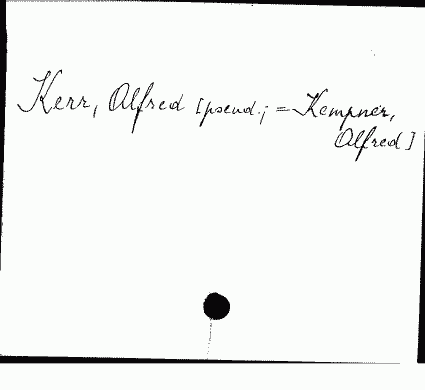 Kerr, Alfred [pseud.; = Kempner,
Alfred]